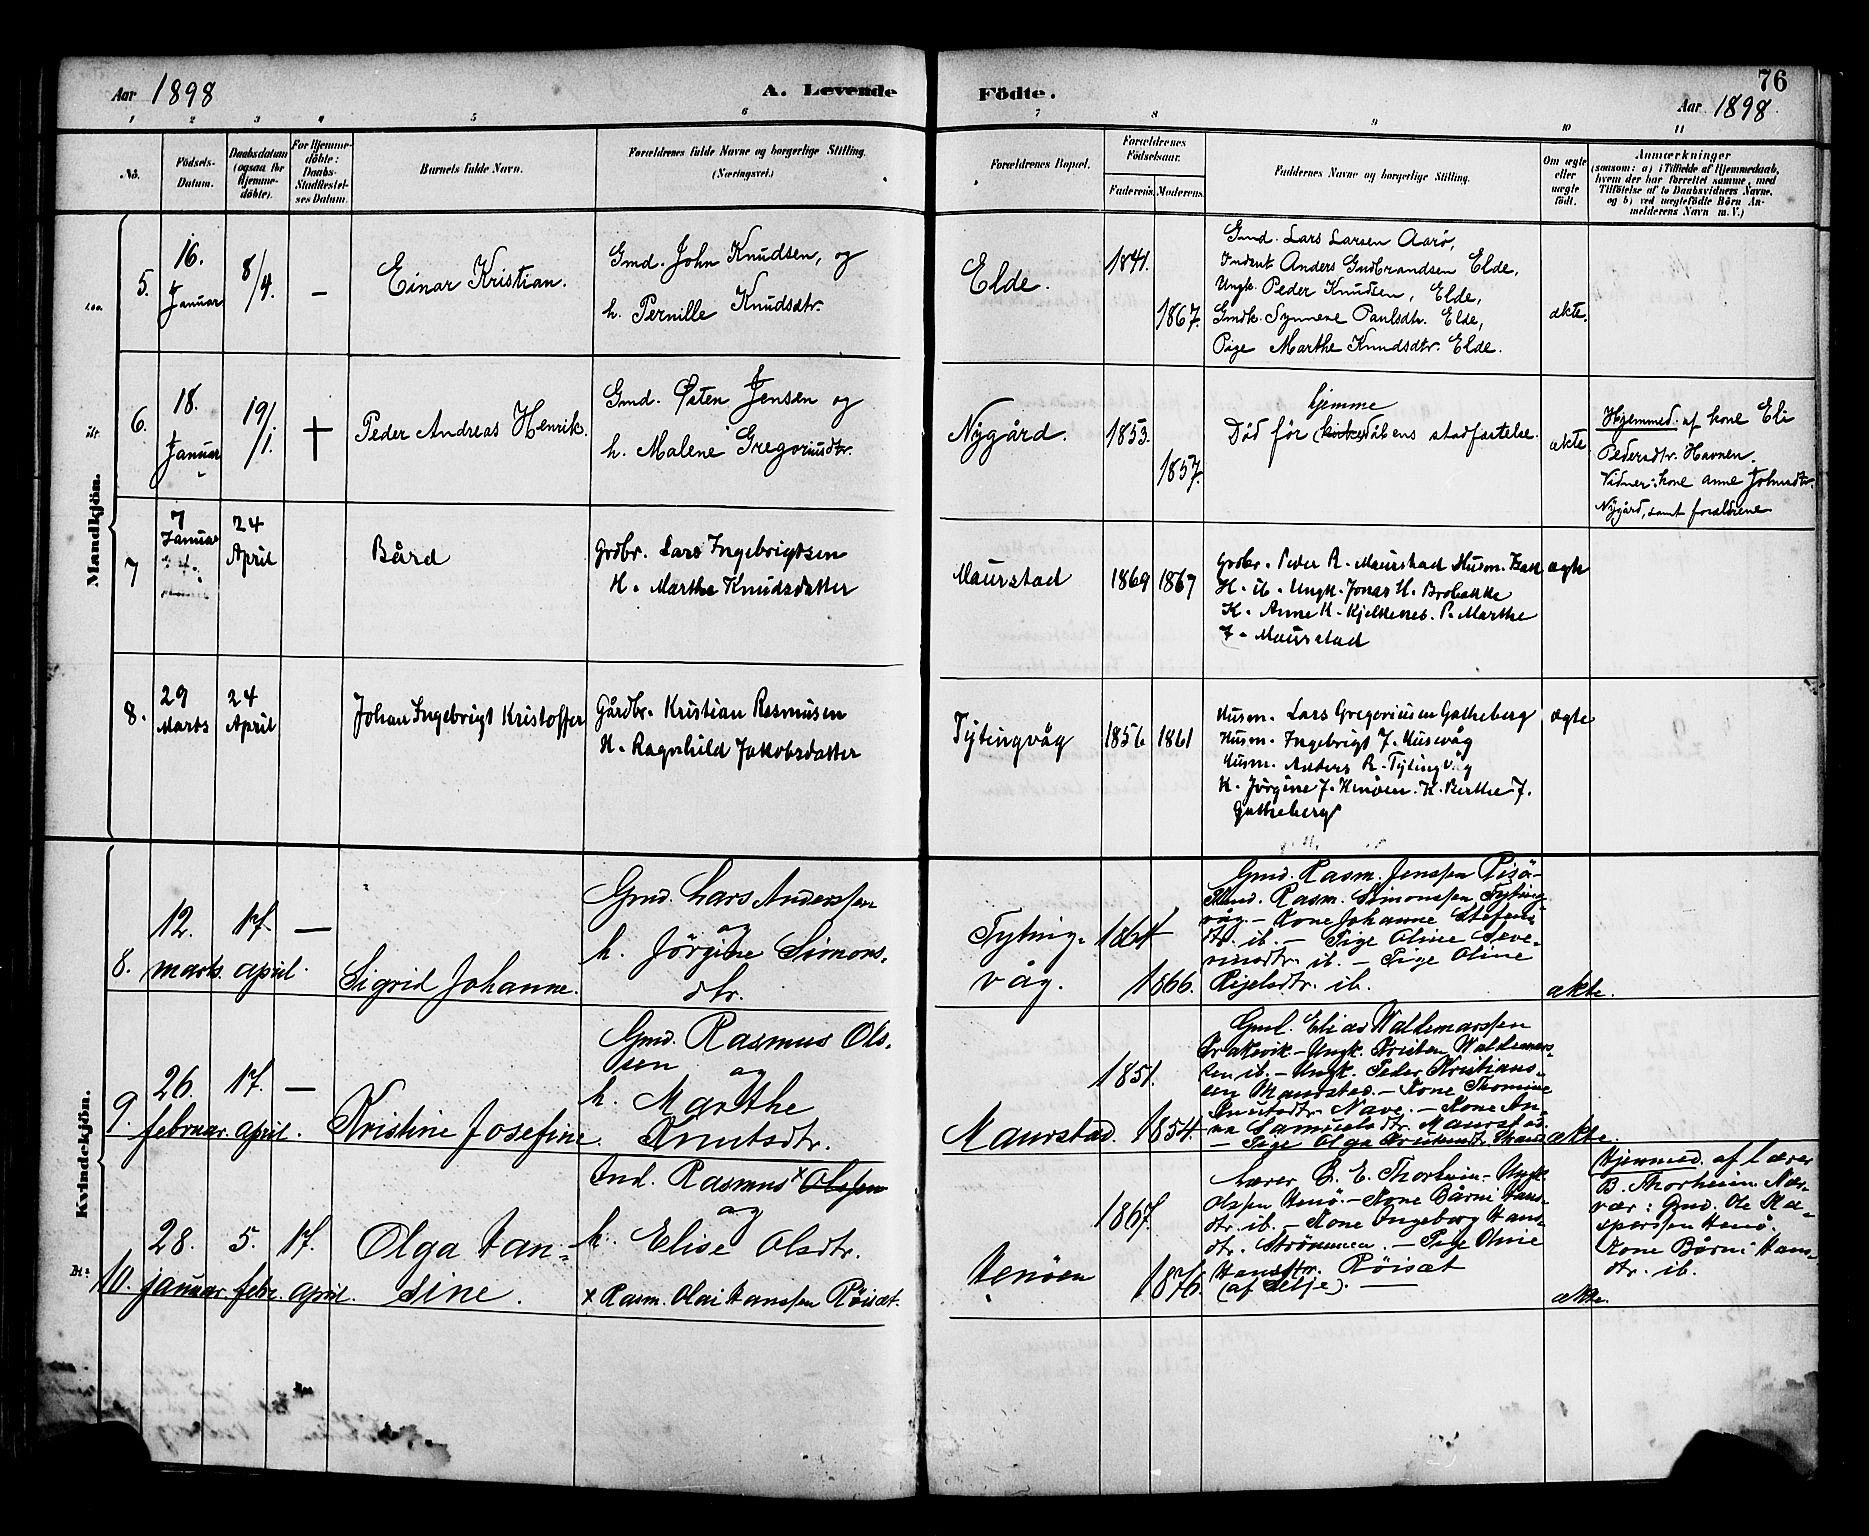 Aar 1898
A. Levende
Födte.
76
Aar 1898
1 2 3 4 5 6 7 8 9 10 11
No.
Födsels-
Datum.
Daabsdatum
(ogsaa for
Hjemme-
döbte).
For Hjemme-
döbte:
Daabs-
Stadfæstel-
ses Datum.
Barnets fulde Navn.
Forældrenes fulde Navne og borgerlige Stilling.
(Næringsvei.)
Forældrenes Bopæl.
Forældrenes
Födselsaar.
Faderens.
Moderens.
Faddernes Navne og borgerlige Stilling.
Om ægte
eller
uægte
født.
Anmærkninger
(saasom: a) i Tilfælde af Hjemmedaab,
hvem der har forrettet samme, med
Tilföielse af to Daabsvidners Navne,
og b) ved uægtefödte Börn An-
melderens Navn m. V.)
Mandkjön.
5.
16.
Januar
8/4.
–
Einar Kristian.
Gmd. John Knudsen, og
h. Pernille Knudsdtr.
Elde.
1841.
1867.
Gmd. Lars Larsen Aarö,
Inderst Anders Gudbrandsen Elde,
Ungk. Peder Knudsen, Elde,
Gmdk. Synneve Paulsdtr. Elde,
Pige Marthe Knudsdtr. Elde.
ækte.
6.
18.
Januar
19/1.
+
Peder Andreas Henrik.
Gmd. Østen Jensen og
h. Malene Gregoriusdtr.
Nygård.
1853.
1857.
hjemme
Död för dåbens stadfæstelse.
ækte
Hjemmed. af kone Eli
Pedersdtr. Havnen.
Vidner: kone Anne Johnsdtr.
Nygård, samt forældrene
7
7
Januar
24
April
Bård
Grdbr. Lars Ingebrigtsen
H. Marthe Knudsdatter
Maurstad
1869
1867
Grdbr. Peder R. Maurstad Husm.
H. ib. Ungk. Jonas H. Brobakke
K. Anne K. Kjelkenes. P. Marthe
J. Maurstad
ægte
8.
29
Marts
24
April
Johan Ingebrigt Kristoffer
Gårdbr. Kristian Rasmusen
H. Ragnhild Jakobsdatter
Tytingvåg
1856
1861
Husm. Lars Gregoriusen Gotheberg
Husm. Ingebrigt J. Husevåg
Husm. Anders R. Tytingvåg
K. Jörgine J. Henöen. K. Berthe J.
Gotheberg
ægte
Kvindekjön.
8.
12.
marts.
17.
april.
—
Sigrid Johanne.
Gmd. Lars Anderssen
og
h. Jörgine Simons-
dtr.
Tyting-
våg.
1864
1866.
Gmd. Rasm. Jenssen Risö-
Rasm. Simonssen Tyting-
våg – Kone Johanne Stefens-
dtr. ib. – Pige Oline Seve-
rinsdtr. ib. – Pige Oline
dtr. ib.
ækte.
9.
26.
februar.
17.
april.
—
Kristine Josefine.
Gmd. Rasmus Ols-
sen og
h. Marthe
Knutsdtr.
Maurstad.
1851.
1854.
Gmd. Elias Waldemarssen
– Ungk. Kristen Waldemars-
sen ib. – Ungk. Peder Kristians-
sen Maurstad. – Kone Thomine
Knutsdtr. Nave. – Kone An-
na Samuelsdtr. Maurstad.
– Pige Olga
ækte.
10.
28.
januar.
5.
febr.
17.
april.
Olga Han-
sine.
Ind. Rasmus × Olssen
og
h. Elise Olsdtr.
× Rasm. Olai Hanssen Röiset.
Henöen
1867.
1876.
Lærer B. E. Thorheim – Ungk.
Olssen Henö. – Kone Bårni Hans-
dtr. ib. – Kone Ingeborg Hans-
dtr. Strömmen. – Pige Oline
Hansdtr. Röiset
(af Selje). —
ækte.
Hjemmed. af lærer
B. Thorheim. Nær-
vær: Gmd. Ole Ka-
sperssen Henö.
Kone Bårni Hans-
dtr. ib.